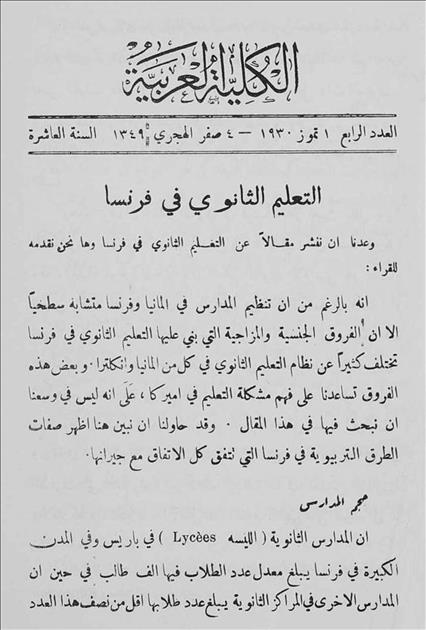 الكلية العربية
العدد الرابع ١ تموز ١٩٣٠ — ٤ صفر الهجري سنة ١٣٤٩ السنة العاشرة
التعليم الثانوي في فرنسا
وعدنا ان ننشر مقالاً عن التعليم الثانوي في فرنسا وها نحن نقدمه
للقراء :
انه بالرغم من ان تنظيم المدارس في المانيا وفرنسا متشابه سطحياً
الا ان الفروق الجنسية والمزاجية التي بني عليها التعليم الثانوي في فرنسا
تختلف كثيراً عن نظام التعليم الثانوي في كل من المانيا وانكلترا . وبعض هذه
الفروق تساعدنا على فهم مشكلة التعليم في اميركا ، عَلَى انه ليس في وسعنا
ان نبحث فيها في هذا المقال . وقد حاولنا ان نبين هنا اظهر صفات
الطرق التربيوية في فرنسا التي نتفق كل الاتفاق مع جيرانها .
حجم المدارس
ان المدارس الثانوية ( الليسه Lycèes ) في باريس وفي المدن
الكبيرة في فرنسا يبلغ معدل عدد الطلاب فيها الف طالب في حين ان
المدارس الاخرى في المراكز الثانوية يبلغ عدد طلابها اقل من نصف هذا العدد